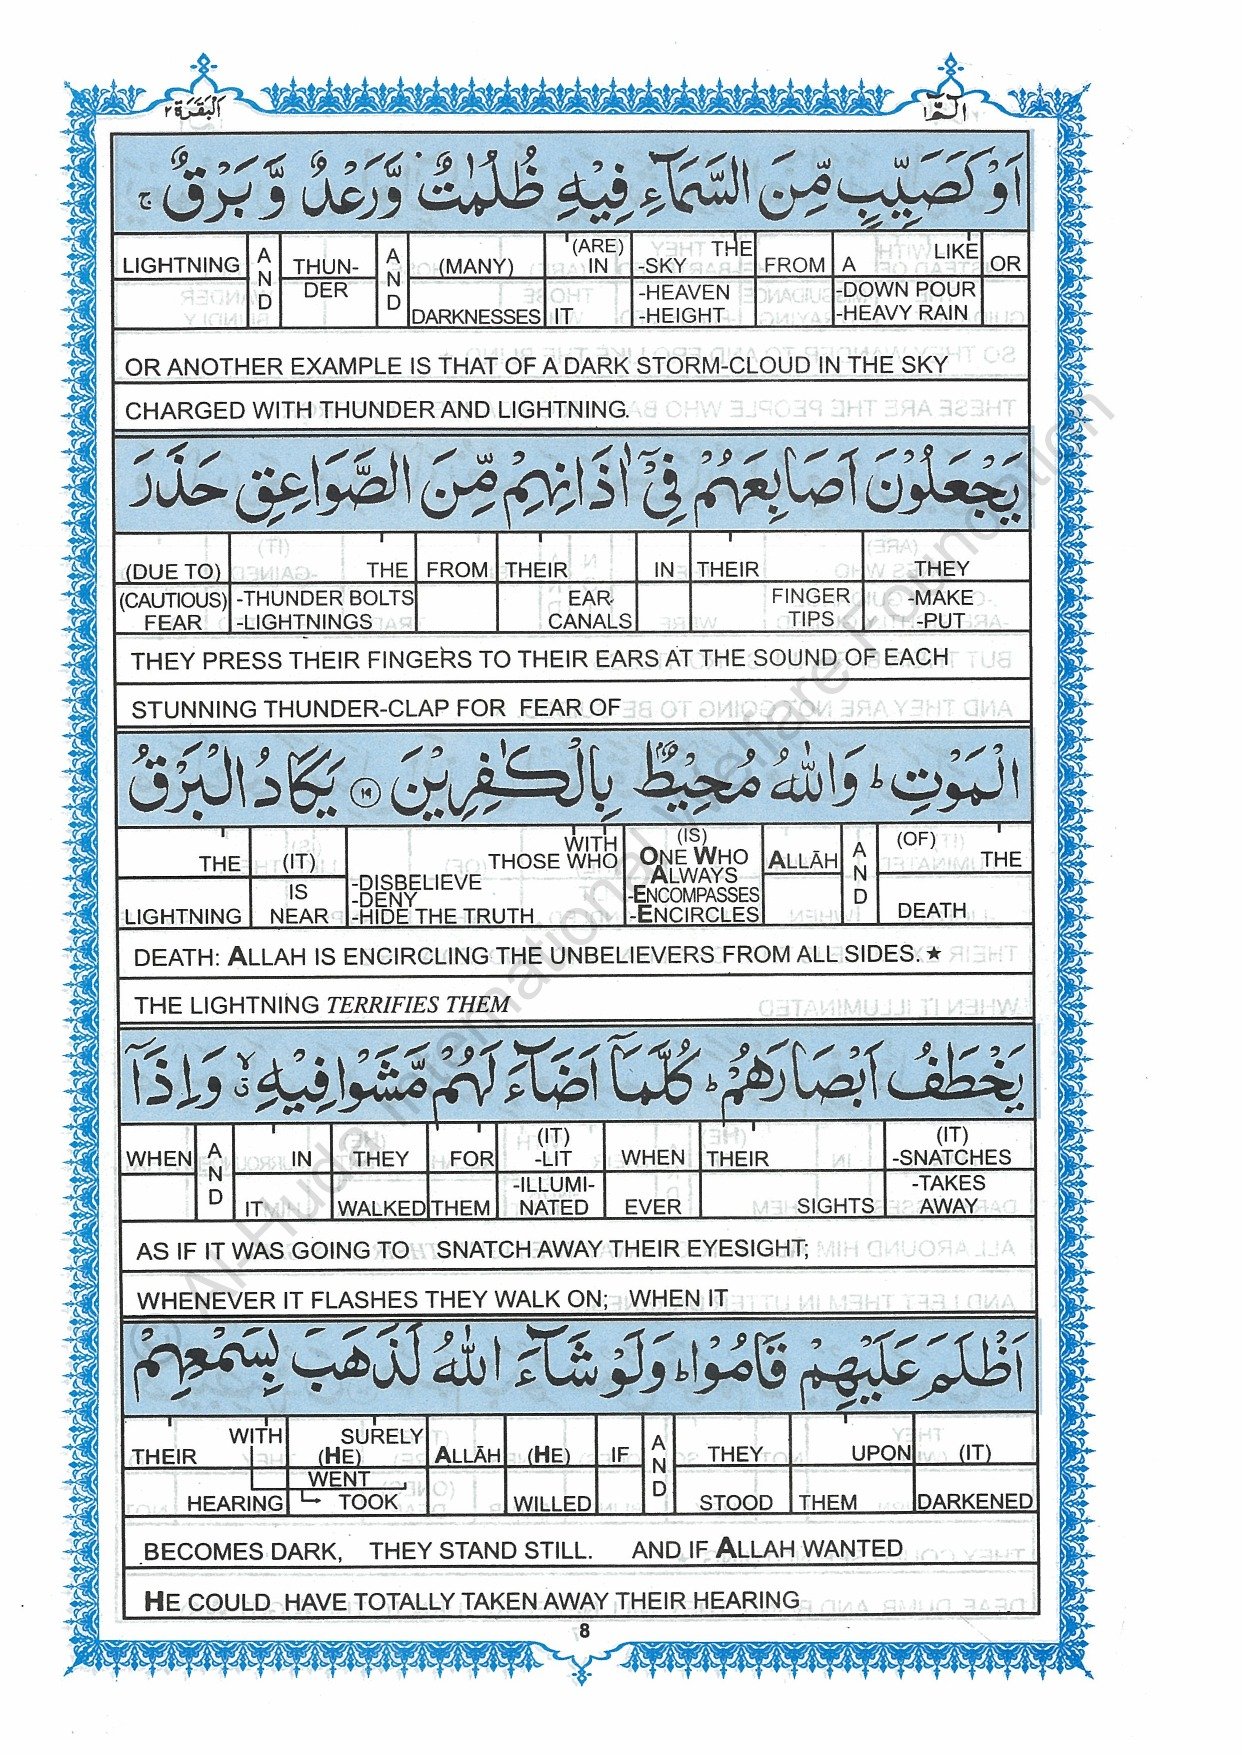 البقرة ٢
الٓمّٓ ١
اَوْ كَصَيِّبٍ مِّنَ السَّمَآءِ فِيْهِ ظُلُمٰتٌ وَّرَعْدٌ وَّبَرْقٌ ۚ
LIGHTNING AND THUN- AND (MANY) (ARE) IN -SKY THE FROM A LIKE OR
DER DARKNESSES IT -HEAVEN -DOWN POUR
-HEIGHT -HEAVY RAIN
OR ANOTHER EXAMPLE IS THAT OF A DARK STORM-CLOUD IN THE SKY
CHARGED WITH THUNDER AND LIGHTNING.
يَجْعَلُوْنَ اَصَابِعَهُمْ فِيْٓ اٰذَانِهِمْ مِّنَ الصَّوَاعِقِ حَذَرَ
(DUE TO) THE FROM THEIR IN THEIR THEY
(CAUTIOUS) -THUNDER BOLTS EAR FINGER -MAKE
FEAR -LIGHTNINGS CANALS TIPS -PUT
THEY PRESS THEIR FINGERS TO THEIR EARS AT THE SOUND OF EACH
STUNNING THUNDER-CLAP FOR FEAR OF
الْمَوْتِ ؕ وَاللّٰهُ مُحِيْطٌۢ بِالْكٰفِرِيْنَ ﴿۱۹﴾ يَكَادُ الْبَرْقُ
THE (IT) THOSE WHO WITH (IS) ONE WHO ALLĀH AND (OF) THE
LIGHTNING IS -DISBELIEVE ALWAYS DEATH
NEAR -DENY -ENCOMPASSES
-HIDE THE TRUTH -ENCIRCLES
DEATH: ALLAH IS ENCIRCLING THE UNBELIEVERS FROM ALL SIDES.★
THE LIGHTNING TERRIFIES THEM
يَخْطَفُ اَبْصَارَهُمْ ؕ كُلَّمَآ اَضَآءَ لَهُمْ مَّشَوْا فِيْهِ ۙۗ وَاِذَآ
WHEN AND IN THEY FOR (IT) -LIT WHEN THEIR (IT) -SNATCHES
IT WALKED THEM -ILLUMI- EVER SIGHTS -TAKES
NATED AWAY
AS IF IT WAS GOING TO SNATCH AWAY THEIR EYESIGHT;
WHENEVER IT FLASHES THEY WALK ON; WHEN IT
اَظْلَمَ عَلَيْهِمْ قَامُوْا ؕ وَلَوْ شَآءَ اللّٰهُ لَذَهَبَ بِسَمْعِهِمْ
THEIR WITH SURELY (HE) ALLĀH (HE) IF AND THEY UPON (IT)
HEARING WENT WILLED STOOD THEM DARKENED
TOOK
BECOMES DARK, THEY STAND STILL. AND IF ALLAH WANTED
HE COULD HAVE TOTALLY TAKEN AWAY THEIR HEARING
8
© Al-Huda International Welfare Foundation